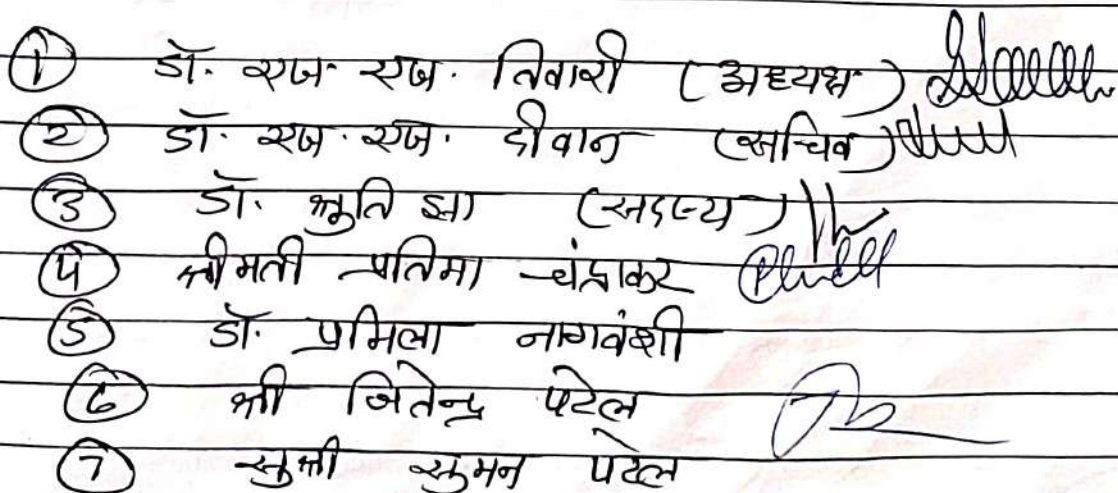 ① डॉ. एज. एज. तिवारी (अध्यक्ष)
② डॉ. एज. एज. दीवान (सचिव)
③ डॉ. श्रुति झा (सदस्य)
④ श्रीमती प्रतिमा चंद्राकर
⑤ डॉ. प्रमिला नागवंशी
⑥ श्री जितेन्द्र पटेल
⑦ सुश्री सुमन पटेल